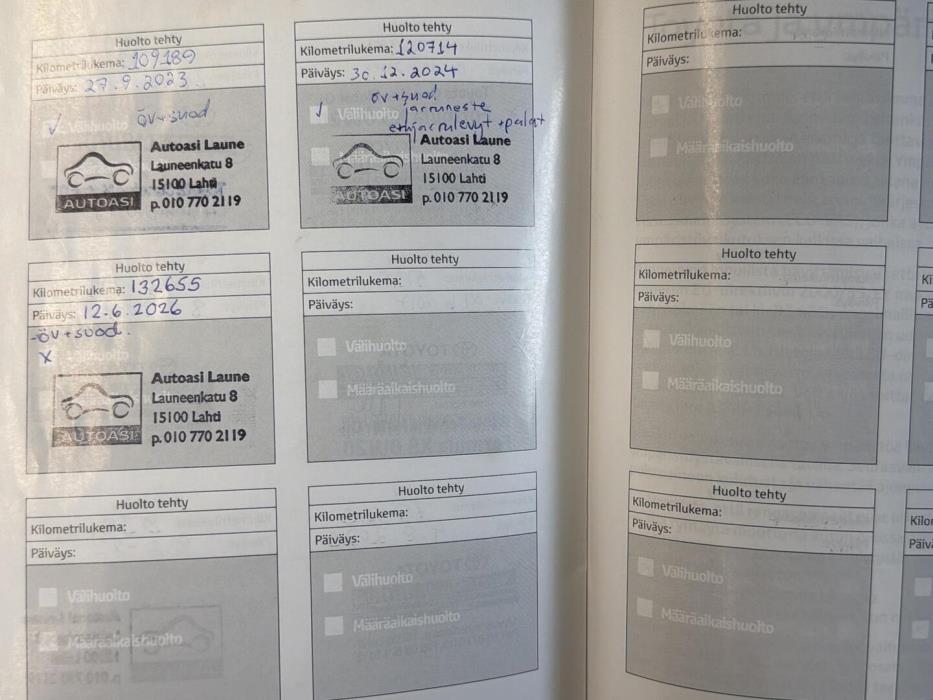 Huolto tehty
Kilometrilukema: 109189
Päiväys: 27.9.2023
Välihuolto öv+suod
Autoasi Laune
Launeenkatu 8
15100 Lahti
AUTOASI p.010 770 2119
Huolto tehty
Kilometrilukema: 120714
Päiväys: 30.12.2024
öv+suod
Välihuolto jarruneste
etujarrulevyt+palat
Autoasi Laune
Launeenkatu 8
15100 Lahti
AUTOASI p.010 770 2119
Huolto tehty
Kilometrilukema:
Päiväys:
Välihuolto
Määräaikaishuolto
Huolto tehty
Kilometrilukema: 132655
Päiväys: 12.6.2026
-öv+suod.
X Välihuolto
Autoasi Laune
Launeenkatu 8
15100 Lahti
AUTOASI p.010 770 2119
Huolto tehty
Kilometrilukema:
Päiväys:
Välihuolto
Määräaikaishuolto
Huolto tehty
Kilometrilukema:
Päiväys:
Välihuolto
Määräaikaishuolto
Huolto tehty
Kilometrilukema:
Päiväys:
Välihuolto
Määräaikaishuolto
Huolto tehty
Kilometrilukema:
Päiväys:
Välihuolto
Määräaikaishuolto
Huolto tehty
Kilometrilukema:
Päiväys:
Välihuolto
Määräaikaishuolto